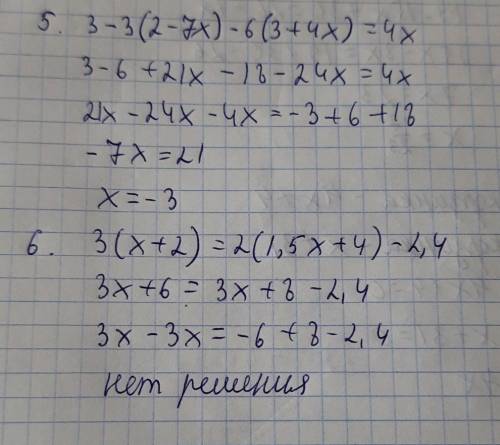 5. 3-3(2-7x)-6(3+4x)=4x
3-6+21x-18-24x=4x
21x-24x-4x=-3+6+18
-7x=21
x=-3
6. 3(x+2)=2(1,5x+4)-2,4
3x+6=3x+8-2,4
3x-3x=-6+8-2,4
нет решения